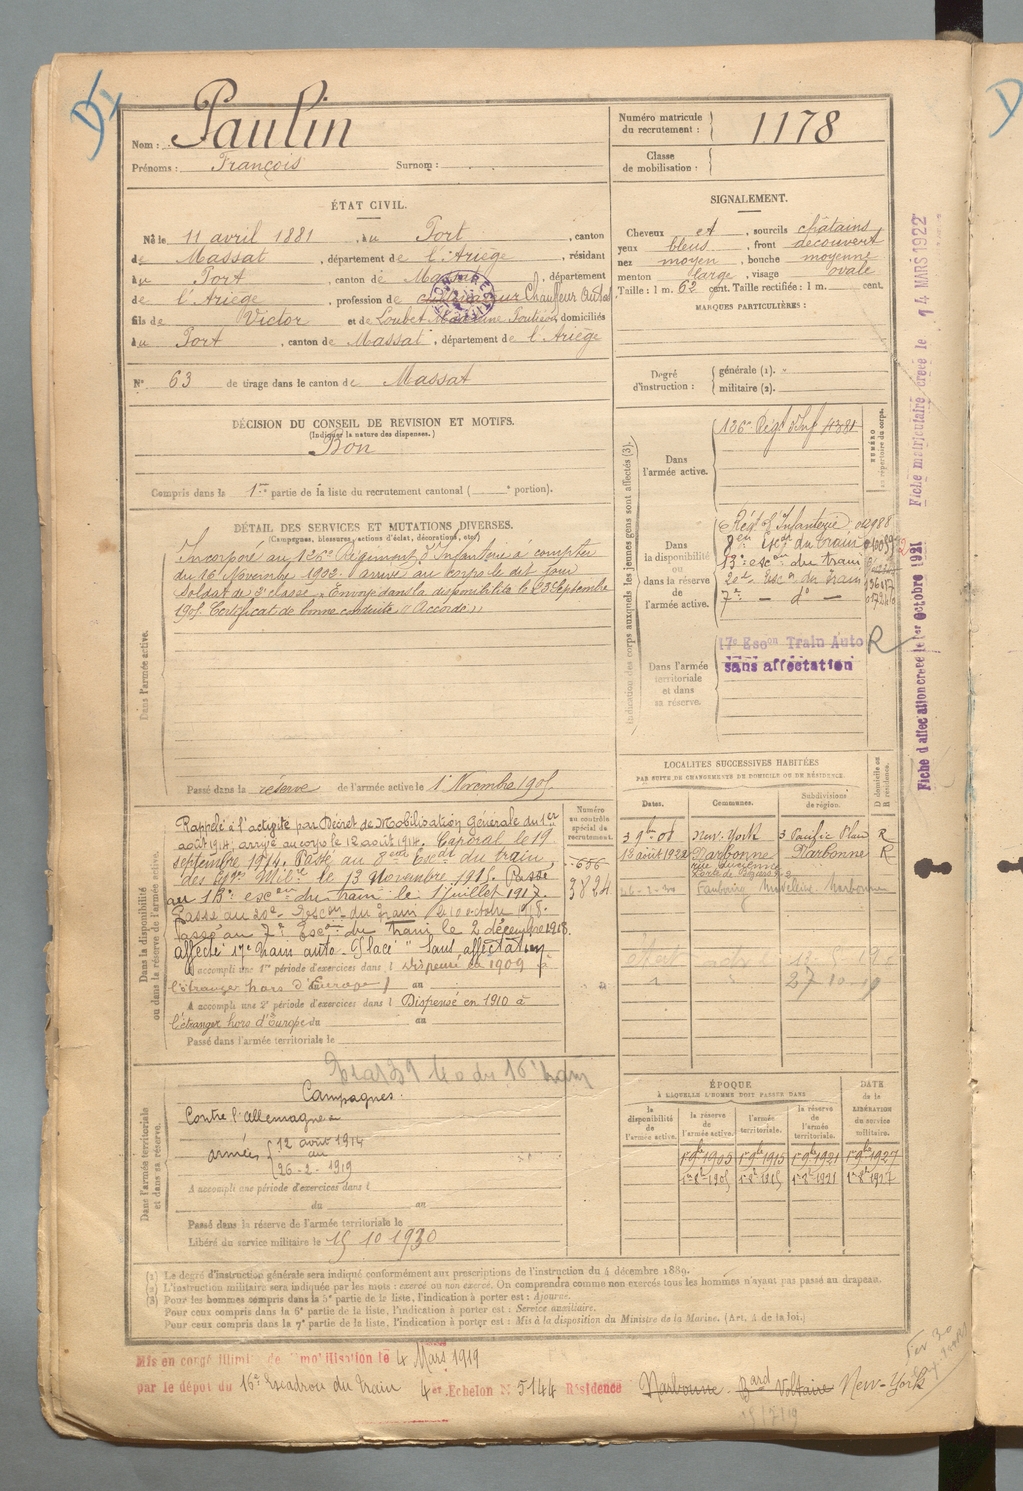 Nom : Paulin
Prénoms : François Surnom :
Numéro matricule du recrutement : 1178
Classe de mobilisation :
ÉTAT CIVIL.
Né le 11 avril 1881, à u Port, canton
de Massat, département de l'Ariège, résidant
à u Port, canton de Massat, département
de l'Ariège, profession de cultivateur Chauffeur
fils de Victor et de Loubet domiciliés
à u Port, canton de Massat, département de l'Ariège
N° 63 de tirage dans le canton de Massat
SIGNALEMENT.
Cheveux et, sourcils châtains
yeux bleus, front découvert
nez moyen, bouche moyenne
menton large, visage ovale
Taille : 1 m. 62 cent. Taille rectifiée : 1 m. cent.
MARQUES PARTICULIÈRES :
Degré d'instruction : générale (1). "
militaire (2).
DÉCISION DU CONSEIL DE REVISION ET MOTIFS.
(Indiquer la nature des dispenses.)
Bon
Compris dans la 1re partie de la liste du recrutement cantonal ( portion).
DÉTAIL DES SERVICES ET MUTATIONS DIVERSES.
(Campagnes, blessures, actions d'éclat, décorations, etc.)
Dans l'armée active.
Incorporé au 126e Régiment d'Infanterie à compter
du 16 Novembre 1902. arrivé au corps le dit jour
Soldat de 2e classe. Envoyé dans la disponibilité le 23 Septembre
1905. Certificat de bonne conduite "Accordé"
Passé dans la réserve de l'armée active le 1er Novembre 1905
Indication des corps auxquels les jeunes gens sont affectés (3).
NUMÉRO au répertoire du corps.
Dans l'armée active.
126e Régt d'Inf 4381
Dans la disponibilité ou dans la réserve de l'armée active.
Régt d'Infanterie
8en escon du train
13e escon du train
20e escon du train
7e — do —
Dans l'armée territoriale et dans sa réserve.
17e Escon Train Auto R
sans affectation
Fiche d'affectation créée le 1er Octobre 1921 Fiche matriculaire créée le 14 MARS 1922
Dans la disponibilité ou dans la réserve de l'armée active.
Numéro au contrôle spécial du recrutement.
656
3824
Rappelé à l'activité par Décret de Mobilisation Générale du 1er
août 1914, arrivé au corps le 12 août 1914. Caporal le 19
septembre 1914. Passé au 8eme Escon du train,
des Eqes Milres le 13 Novembre 1915. Passé
au 13e escon du train le 1 juillet 1917.
Passé au 20e Escon du Train le 10 octobre 1918.
Passé au 7e Escon du Train le 2 décembre 1918.
affecté 17e train auto. Placé "Sans affectation"
A accompli une 1re période d'exercices dans l Dispensé en 1909 à
l'étranger hors d'Europe au
A accompli une 2e période d'exercices dans l Dispensé en 1910 à
l'étranger hors d'Europe du au
Passé dans l'armée territoriale le
LOCALITÉS SUCCESSIVES HABITÉES
PAR SUITE DE CHANGEMENTS DE DOMICILE OU DE RÉSIDENCE.
Dates. Communes. Subdivisions de région. D domicile ou R résidence.
New-York 3 Pacific R
12 août 1922 Narbonne Narbonne R
Faubourg Narbonne
27-10-19
Dans l'armée territoriale et dans sa réserve.
Campagnes.
Contre l'Allemagne
armées { 12 août 1914
au
26-2-1919
A accompli une période d'exercices dans l
du au
Passé dans la réserve de l'armée territoriale le
Libéré du service militaire le 15 10 1930
ÉPOQUE
À LAQUELLE L'HOMME DOIT PASSER DANS
la disponibilité de l'armée active. la réserve de l'armée active. l'armée territoriale. la réserve de l'armée territoriale. DATE de la LIBÉRATION du service militaire.
1er 9bre 1905 1er 9bre 1915 1er 9bre 1921 1er 9bre 1927
(1) Le degré d'instruction générale sera indiqué conformément aux prescriptions de l'instruction du 4 décembre 1889.
(2) L'instruction militaire sera indiquée par les mots : exercé ou non exercé. On comprendra comme non exercés tous les hommes n'ayant pas passé au drapeau.
(3) Pour les hommes compris dans la 5e partie de la liste, l'indication à porter est : Ajourné.
Pour ceux compris dans la 6e partie de la liste, l'indication à porter est : Service auxiliaire.
Pour ceux compris dans la 7e partie de la liste, l'indication à porter est : Mis à la disposition du Ministre de la Marine. (Art. 4 de la loi.)
Mis en congé illimité de démobilisation le 4 Mars 1919
par le dépôt du 16e Escadron du Train 4er Echelon N° 5144 Résidence Narbonne Bard Voltaire New-York